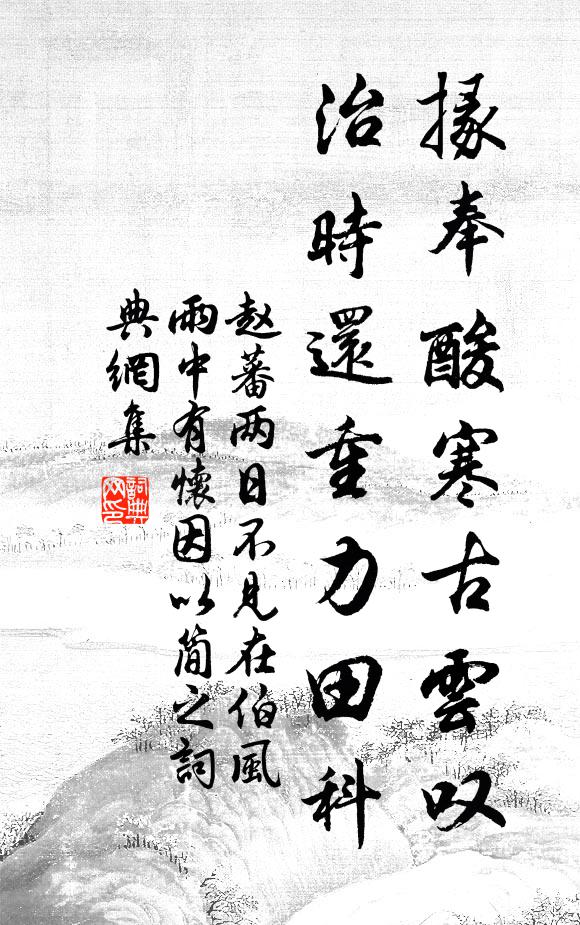 掾奉酸寒古雲叹
治時還重力田科
赵蕃两日不见在伯風
雨中有懷因以簡之詞
典網集
詞典网印